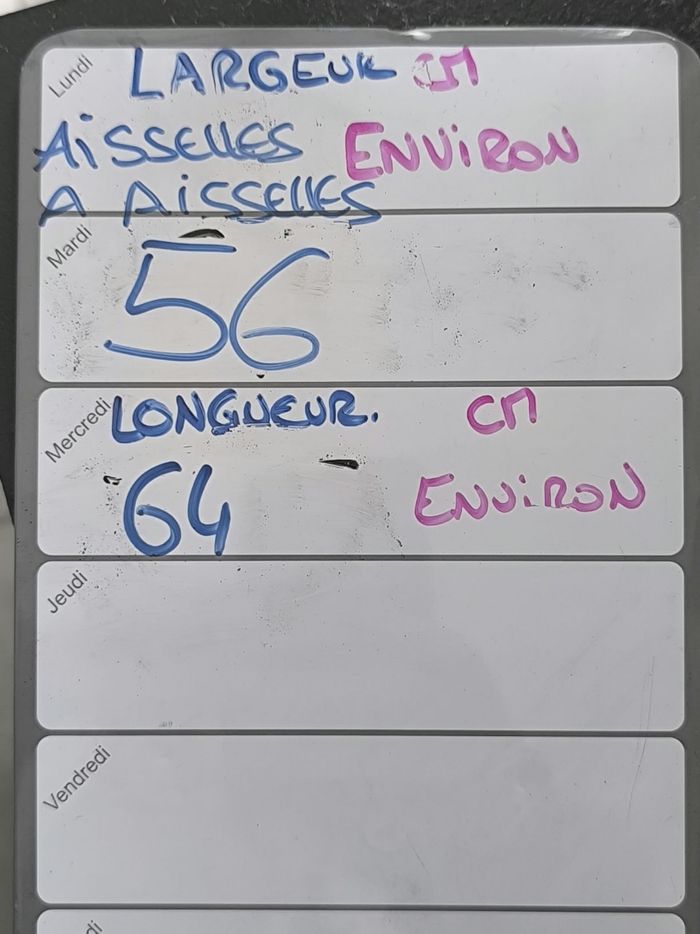 Lundi
LARGEUR CM
AiSSELLES ENViRON
A AiSSELLES
Mardi
56
Mercredi
LONGUEUR. CM
64 ENViRON
Jeudi
Vendredi
di